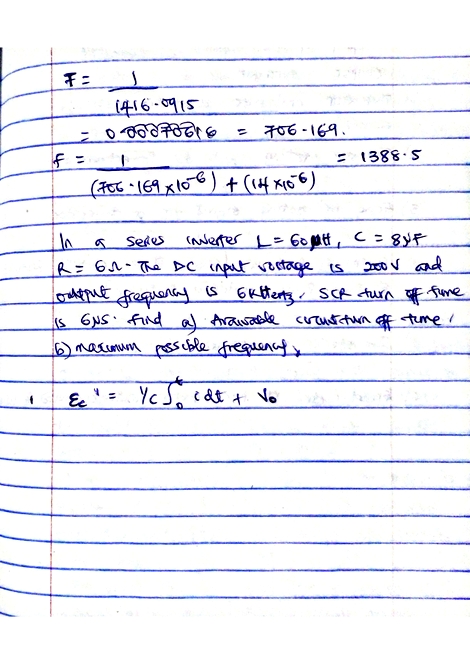 F = 1
1416.0915
= 0.00070616 = 706.169.
f = 1 = 1388.5
(706.169 x10⁻⁶) + (14 x10⁻⁶)
In a series inverter L = 60 μH, C = 8μF
R = 6Ω. The DC input voltage is 200V and
output frequency is 6KHertz, SCR turn off time
is 6μs. find a) Avauable circuit turn off time,
b) maximum possible frequency,
1 Ec' = 1/c ∫₀ᵗ idt + V₀